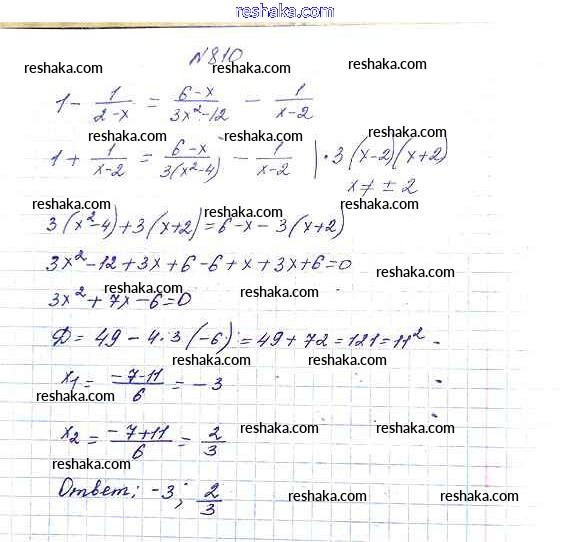 reshaka.com
№810
reshaka.com reshaka.com reshaka.com
1 - 1/(2-x) = (6-x)/(3x²-12) - 1/(x-2)
reshaka.com reshaka.com
reshaka.com
1 + 1/(x-2) = (6-x)/(3(x²-4)) - 1/(x-2) | · 3(x-2)(x+2)
x ≠ ± 2
reshaka.com reshaka.com reshaka.com
3(x²-4)+3(x+2)=6-x-3(x+2)
reshaka.com reshaka.com
3x²-12+3x+6-6+x+3x+6=0
reshaka.com
3x²+7x-6=0
reshaka.com reshaka.com
D = 49 - 4·3(-6) = 49+72 = 121 = 11²
reshaka.com reshaka.com
x₁ = (-7-11)/6 = -3
reshaka.com
x₂ = (-7+11)/6 = 2/3
reshaka.com reshaka.com
reshaka.com
Ответ: -3; 2/3
reshaka.com reshaka.com reshaka.com